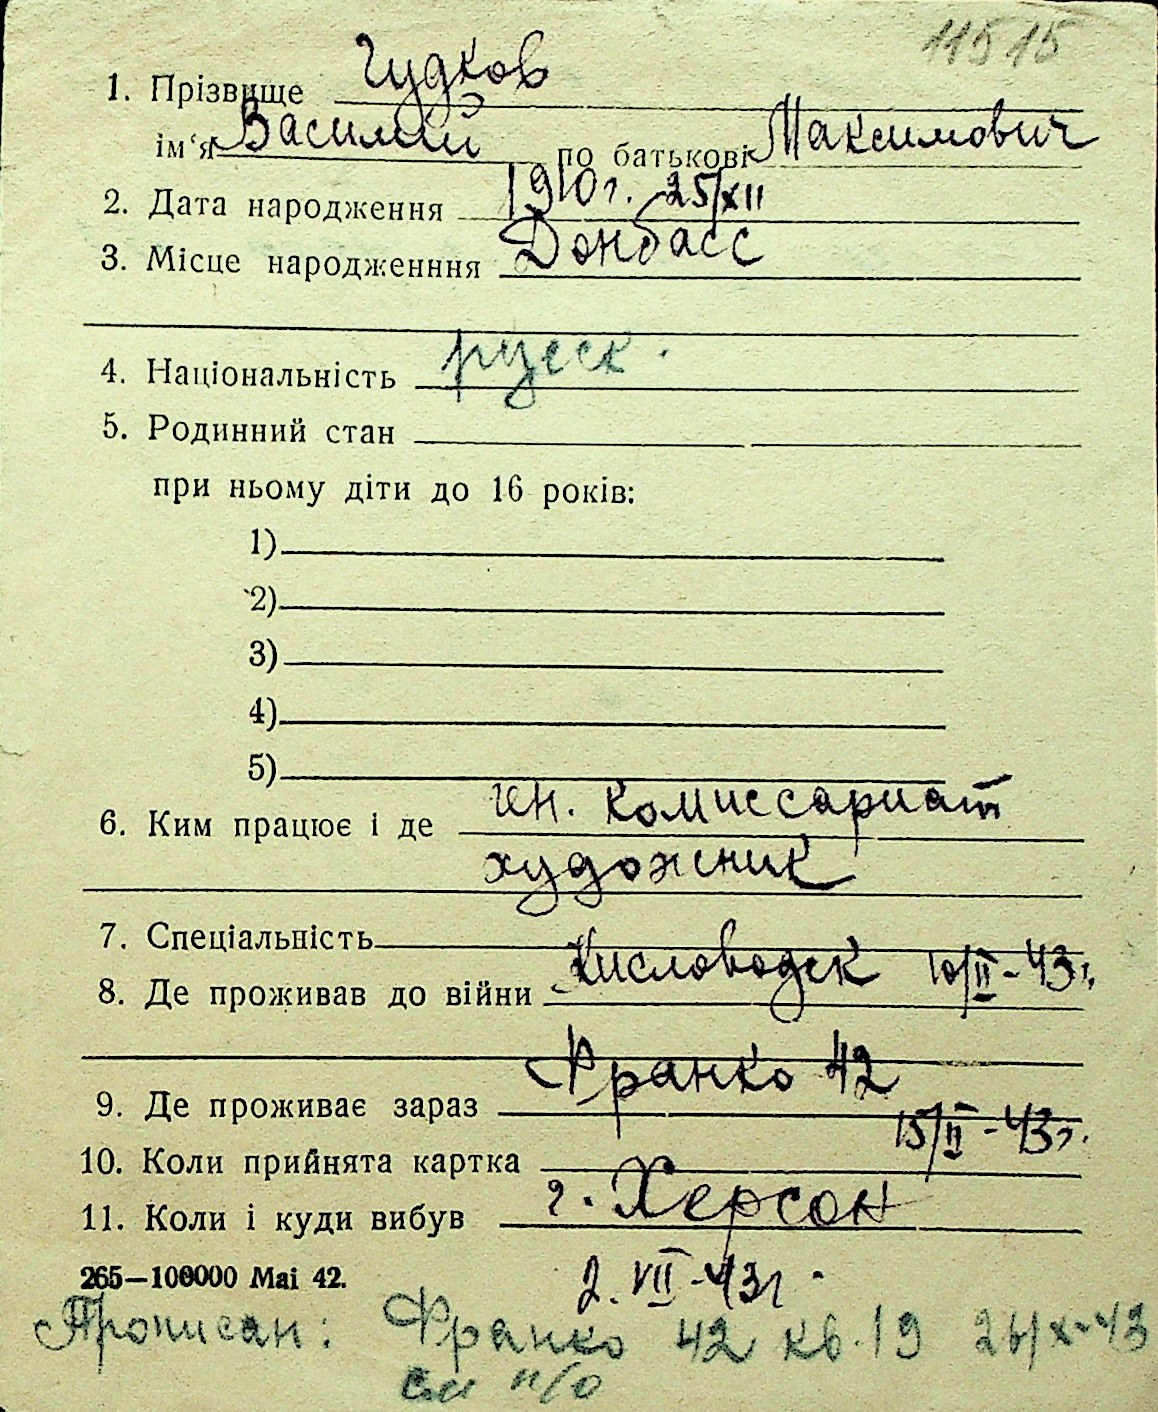 11515
1. Прізвище Гудков
ім‘я Василий по батькові Максимович
2. Дата народження 1910г. 25/XII
3. Місце народженння Донбасс
4. Національність русск.
5. Родинний стан
при ньому діти до 16 років:
1)
2)
3)
4)
5)
6. Ким працює і де ген. комиссариат
художник
7. Спеціальність
8. Де проживав до війни Кисловодск 10/II-43г.
9. Де проживає зараз Франко 42
10. Коли прийнята картка 15/II-43г.
11. Коли і куди вибув г. Херсон
265—100000 Маі 42. 2. VII-43г.
Прописан: Франко 42 кв. 19 /X-43
см н/о